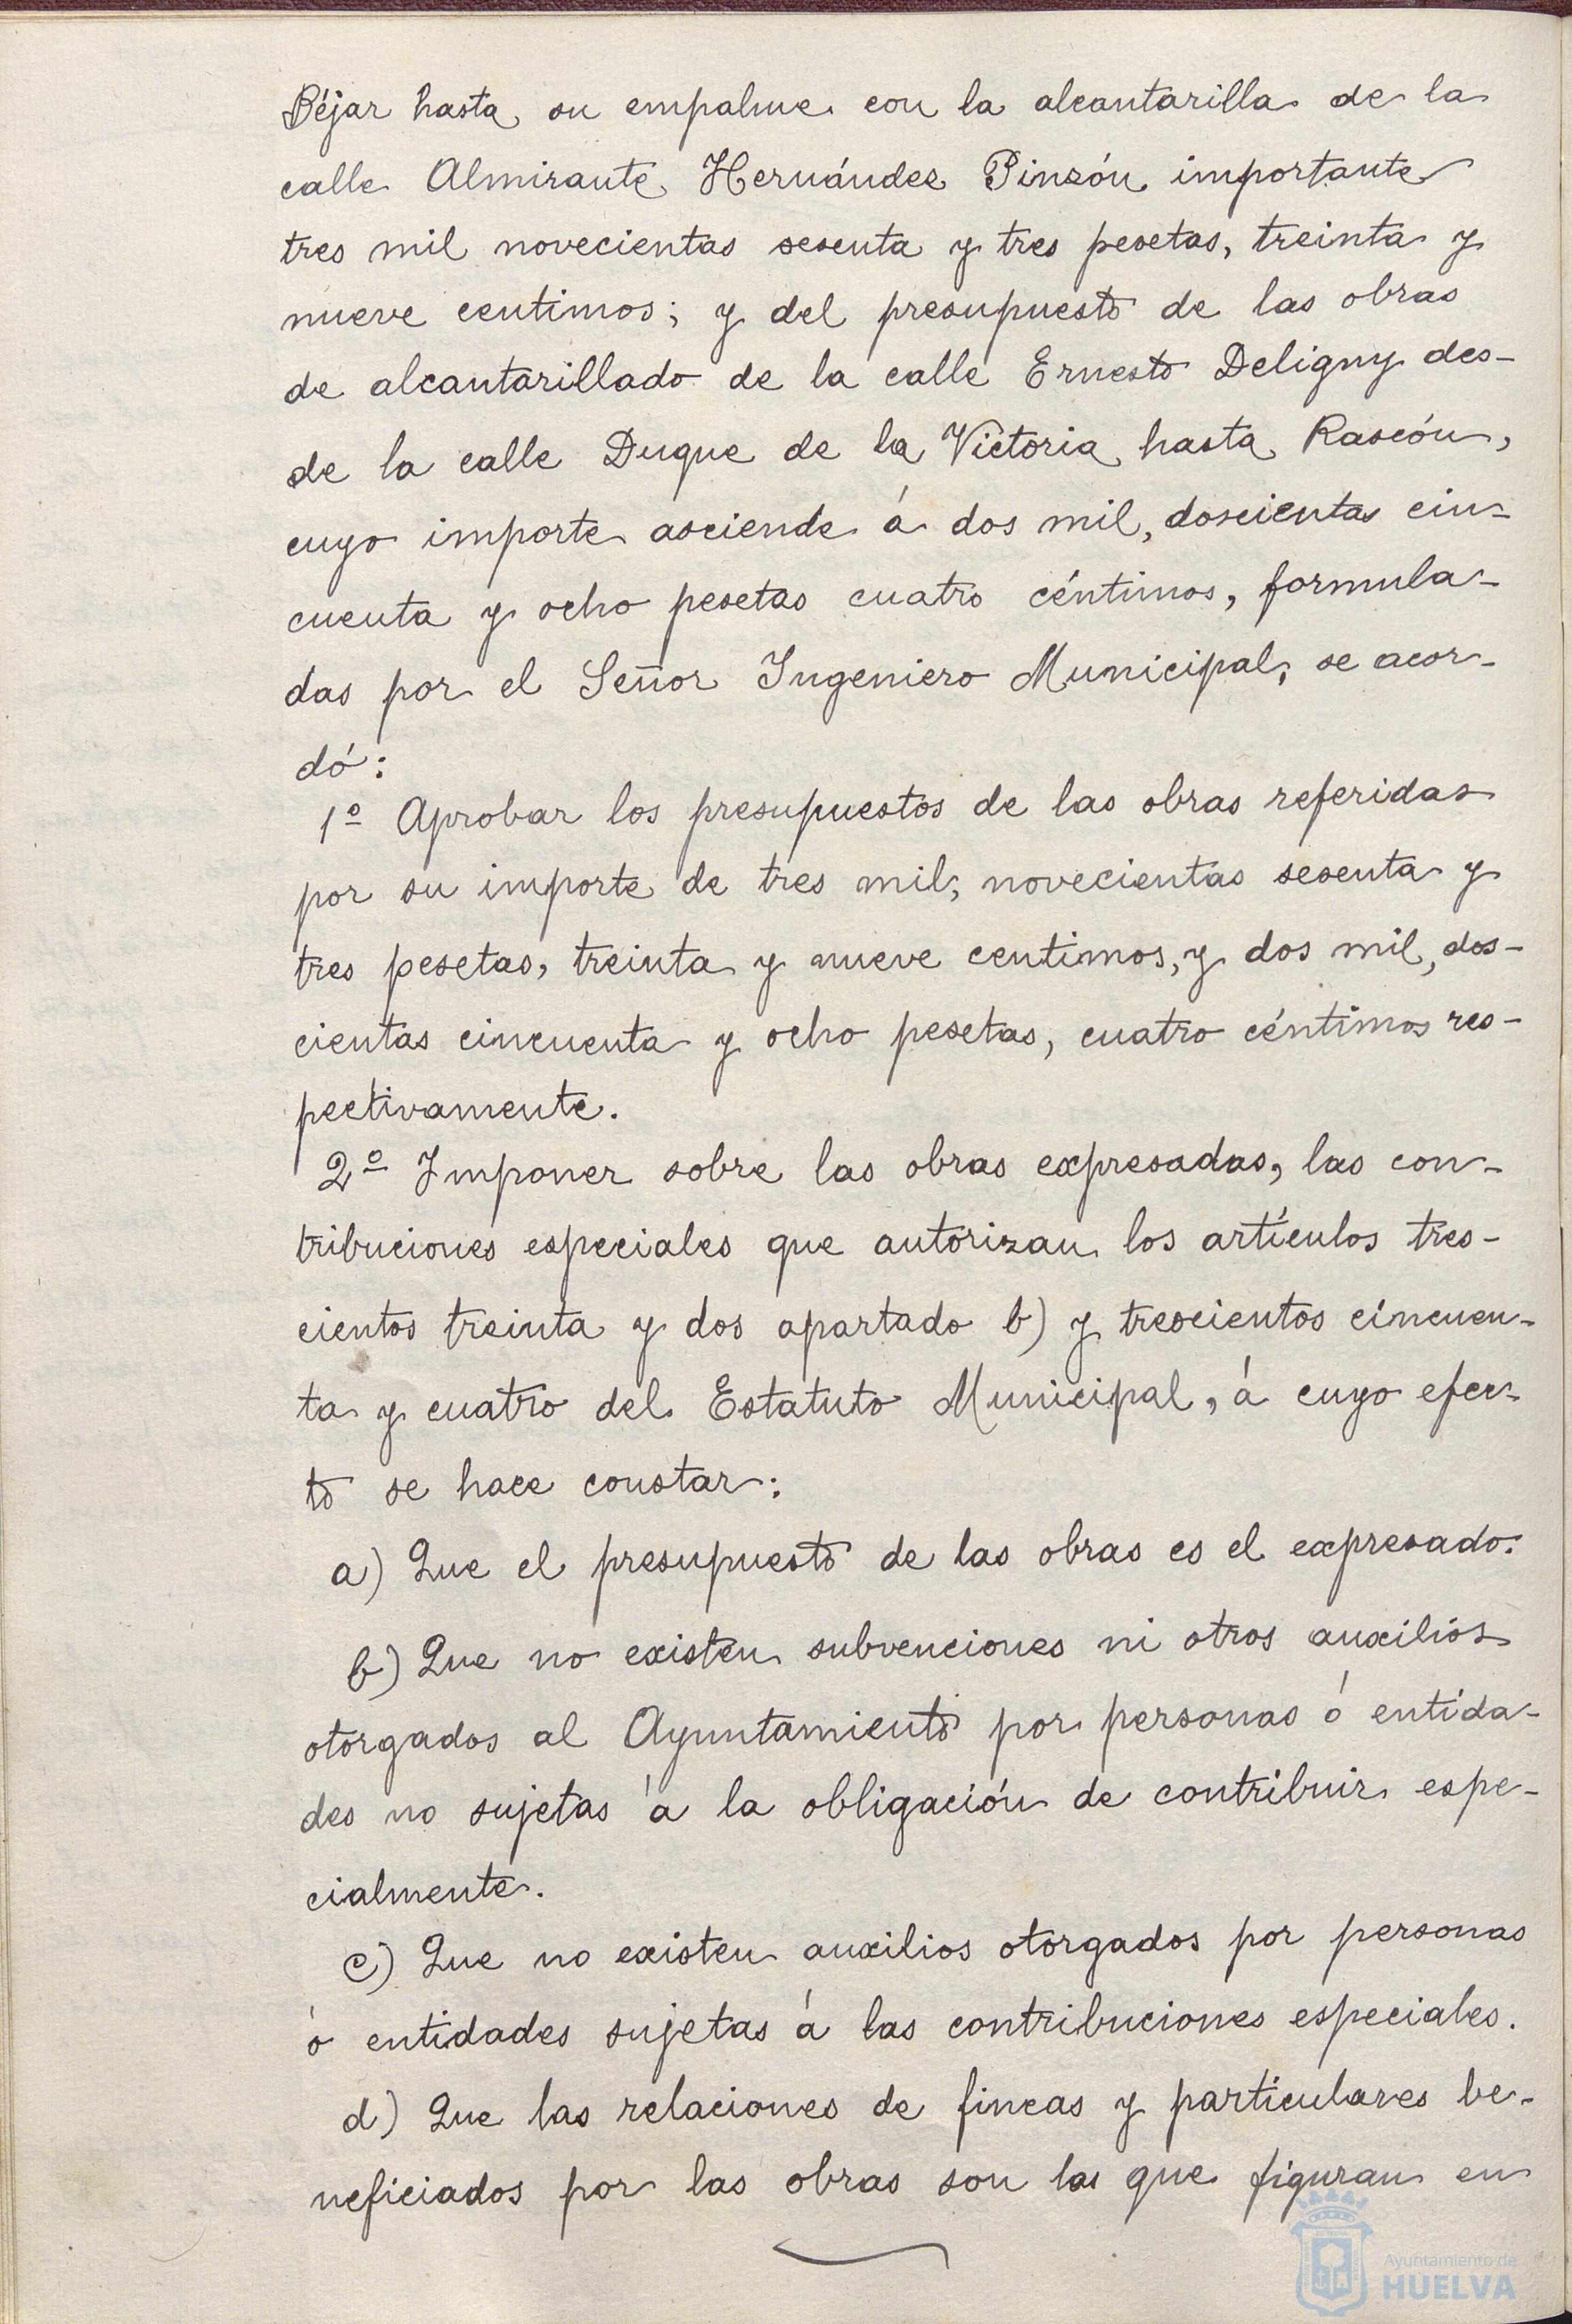 Béjar hasta su empalme con la alcantarilla de la
calle Almirante Hernández Pinzón importante
tres mil novecientas sesenta y tres pesetas, treinta y
nueve centimos; y del presupuesto de las obras
de alcantarillado de la calle Ernesto Deligny des-
de la calle Duque de la Victoria hasta Rascón,
cuyo importe asciende á dos mil, doscientas cin-
cuenta y ocho pesetas cuatro céntimos, formula-
das por el Señor Ingeniero Municipal, se acor-
dó:
1º Aprobar los presupuestos de las obras referidas
por su importe de tres mil, novecientas sesenta y
tres pesetas, treinta y nueve centimos, y dos mil, dos-
cientas cincuenta y ocho pesetas, cuatro céntimos res-
pectivamente.
2º Imponer sobre las obras expresadas, las con-
tribuciones especiales que autorizan los artículos tres-
cientos treinta y dos apartado b) y trescientos cincuen-
ta y cuatro del Estatuto Municipal, á cuyo efec-
to se hace constar:
a) Que el presupuesto de las obras es el expresado.
b) Que no existen subvenciones ni otros auxilios
otorgados al Ayuntamiento por personas ó entida-
des no sujetas á la obligación de contribuir espe-
cialmente.
c) Que no existen auxilios otorgados por personas
ó entidades sujetas á las contribuciones especiales.
d) Que las relaciones de fincas y particulares be-
neficiados por las obras son las que figuran en
Ayuntamiento de
HUELVA